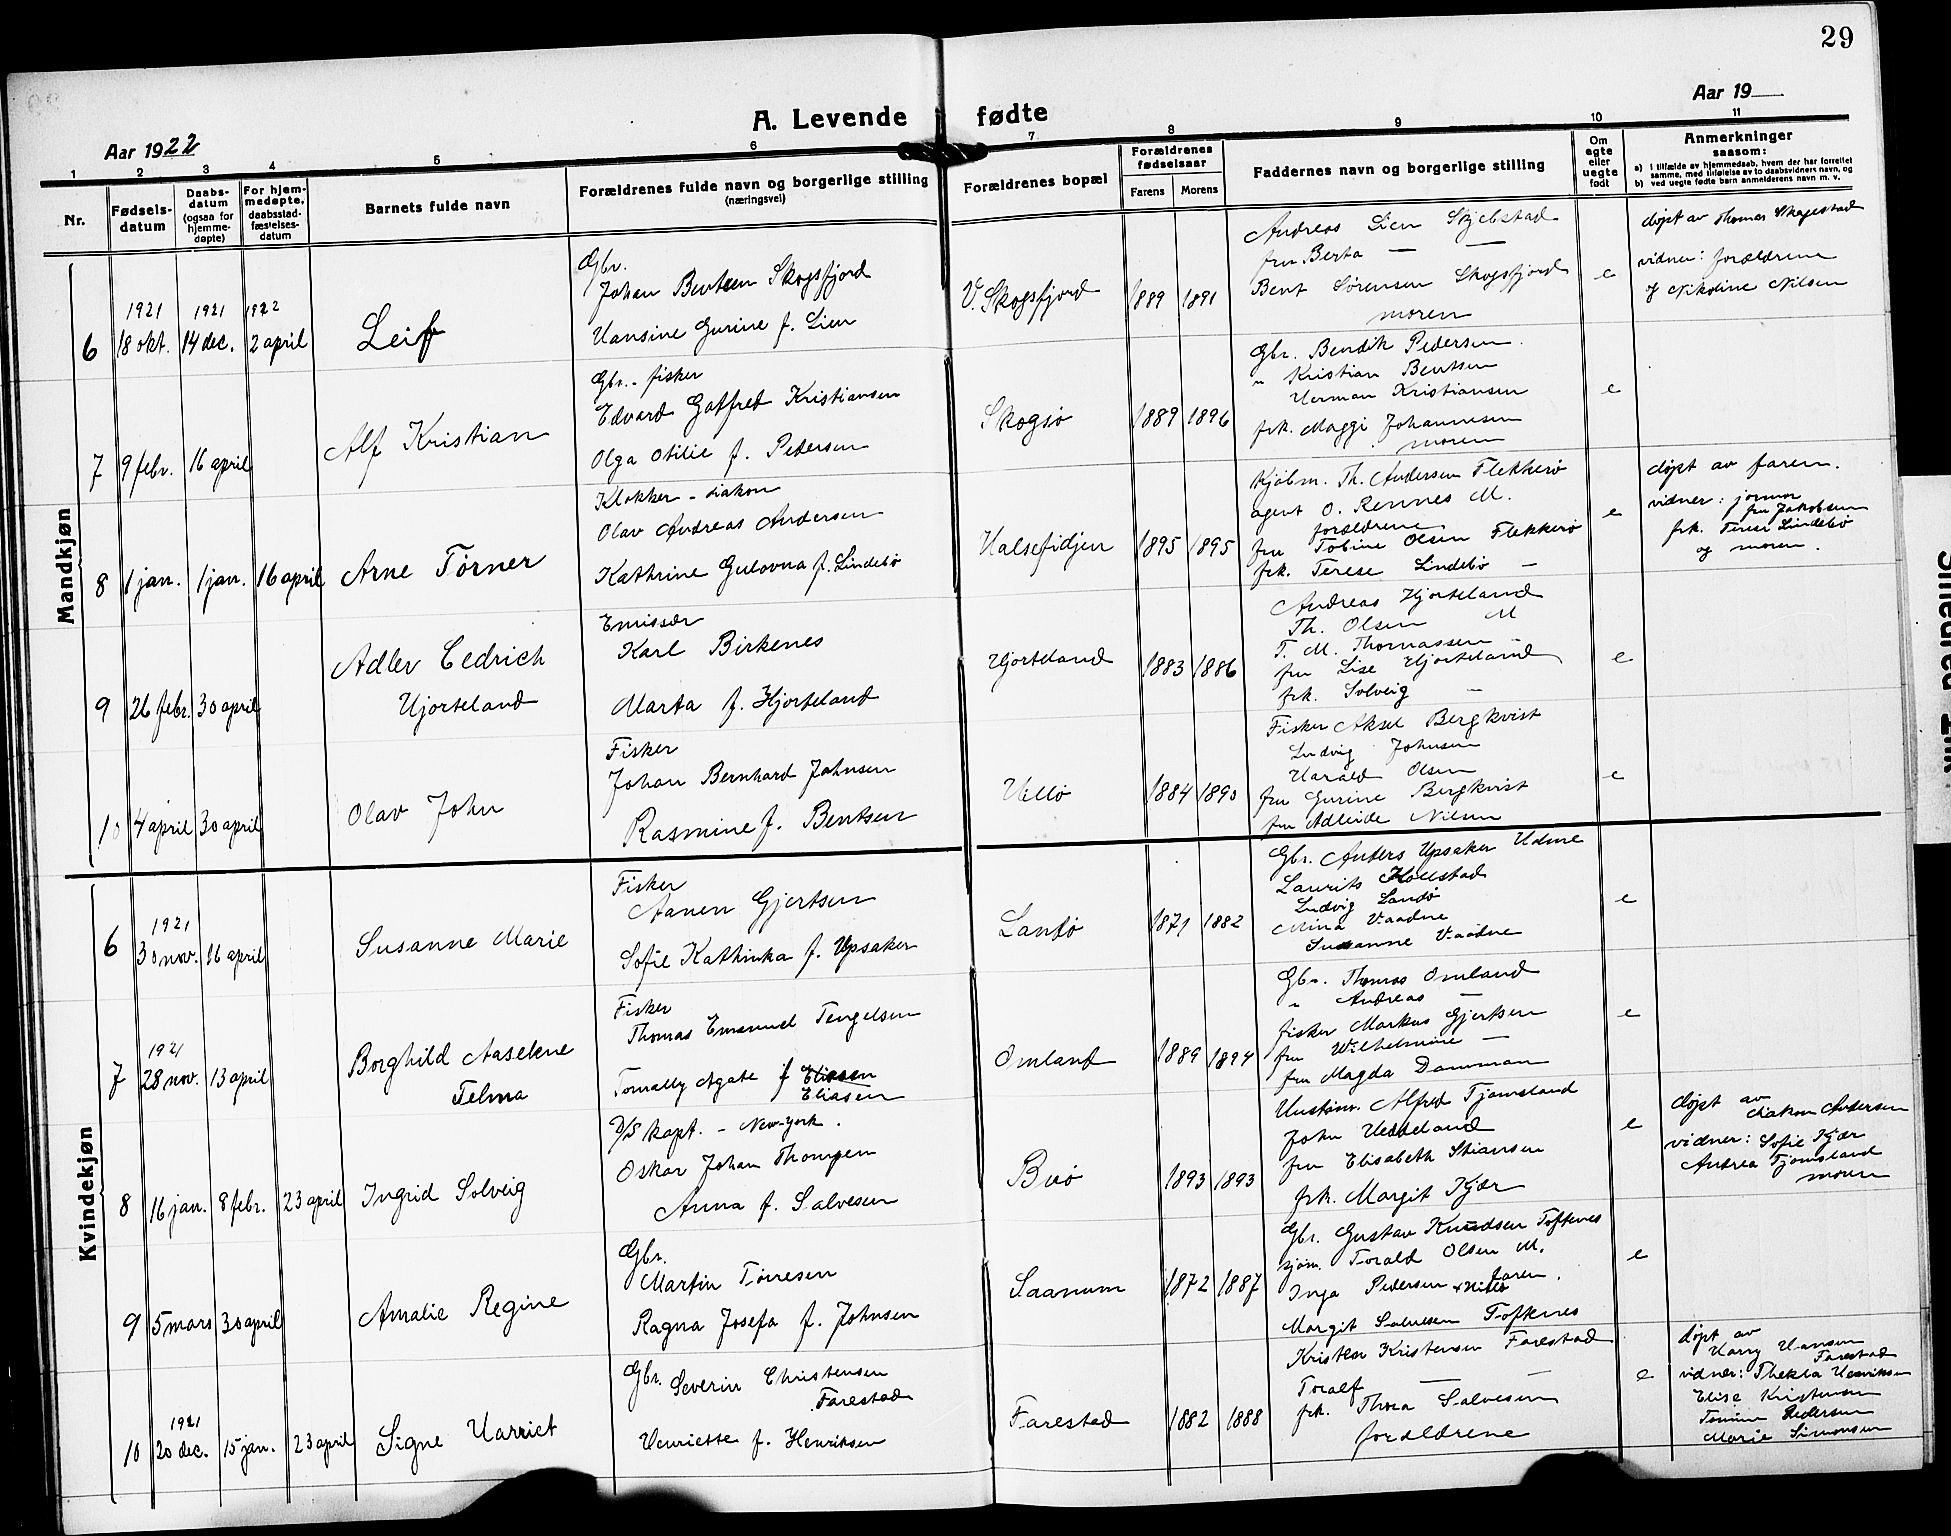 29
Aar 1922
A. Levende fødte
Aar 19
1 2 3 4 5 6 7 8 9 10 11
Nr.
Fødsels-datum
Daabs-datum (ogsaa for hjemme-døpte)
For hjem-medøpte, daabsstad-fæstelses-datum
Barnets fulde navn
Forældrenes fulde navn og borgerlige stilling (næringsvei)
Forældrenes bopæl
Forældrenes fødselsaar
Farens Morens
Faddernes navn og borgerlige stilling
Om egte eller uegte født
Anmerkninger saasom:
a) i tilfælde av hjemmedaab, hvem der har forrettet samme, med tilføielse av to daabsvidners navn, og
b) ved uegte fødte barn anmelderens navn m. v.
Mandkjøn
6
1921 18 okt.
1921 14 dec.
1922 2 april
Leif
Gbr.
Johan Bentsen Skogsfjord
Hansine Gurine f. Lien
V. Skogsfjord
1889 1891
Andreas Lien Skjebstad
fru Berta — —
Bent Sørensen Skogsfjord
moren
e
døpt av Thomas Skagestad
vidner: forældrene
og Nikoline Nilsen
7
9 febr.
16 april
Alf Kristian
Gbr. - fisker
Edvard Gotfred Kristiansen
Olga Otilie f. Pedersen
Skogsø
1889 1896
Gbr. Bendik Pedersen
" Kristian Bentsen
Herman Kristiansen
frk. Maggi Johannesen
moren
e
8
1 jan.
1 jan.
16 april
Arne Tørner
Klokker - diakon
Olav Andreas Andersen
Kathrine Gulovna f. Lindebø
Halsefidjen
1895 1895
Kjøbm. Th. Andersen Flekkerø
agent O. Rennes M.
forældrene
fru Tobine Olsen Flekkerø
frk. Terese Lindebø —
e
døpt av faren.
vidner: jormor
fru Jakobsen
frk. Terese Lindebø
og moren.
9
26 febr.
30 april
Adler Cedrich
Hjorteland
Emissær
Karl Birkenes
Marta f. Hjorteland
Hjorteland
1883 1886
Andreas Hjorteland
Th. Olsen M
T. M. Thomassen —
fru Lise Hjorteland
frk. Solveig —
e
10
4 april
30 april
Olav John
Fisker
Johan Bernhard Johnsen
Rasmine f. Bentsen
Hellø
1884 1890
Fisker Aksel Bergkvist
Ludvig Johnsen
Harald Olsen
fru Gurine Bergkvist
fru Adleide Nilsen
e
Kvindekjøn
6
1921 30 nov.
16 april
Susanne Marie
Fisker
Aanen Gjertsen
Sofie Kathinka f. Upsaker
Landø
1871 1882
Gbr. Anders Upsaker Udme
Laurits Hollestad
Ludvig Landø
Mina Vaadne
Susanne Vaadne
e
7
1921 28 nov.
13 april
Borghild Aaselene
Telma
Fisker
Thomas Emanuel Tengelsen
Tomally Agate f Eliasen
Eliasen
Omland
1889 1894
Gbr. Thomas Omland
" Andreas —
fisker Markus Gjertsen
fru Wilhelmine —
fru Magda Damman
e
8
16 jan.
8 febr.
23 april
Ingrid Solveig
D/S kapt. - New-York.
Oskar Johan Thompsen
Anna f. Salvesen
Buø
1893 1893
Alfred Tjomsland
John Heddeland
fru Elisabeth Stiansen
frk. Margit Kjær
e
døpt av
diakon Andersen
vidner: Sofie Kjær
Andrea Tjomsland
moren
9
5 mars
30 april
Amalie Regine
Gbr.
Martin Tørresen
Ragna Josefa f. Johnsen
Saanum
1872 1887
Gbr. Gustav Knudsen Toftenes
sjøm. Torald Olsen M.
Inga Pedersen faren.
Margit Salvesen Toftenes
e
10
1921 20 dec.
15 jan.
23 april
Signe Harriet
Gbr. Severin Christensen
Farestad
Henriette f. Henriksen
Farestad
1882 1888
Kristen Kristensen Farestad
Toralf — —
frk. Thora Salvesen
forældrene
e
døpt av
Harry Hansen
Farestad
vidner: Thekla Henriksen
Elise Kristensen
Tomine Pedersen
Marie Simonsen